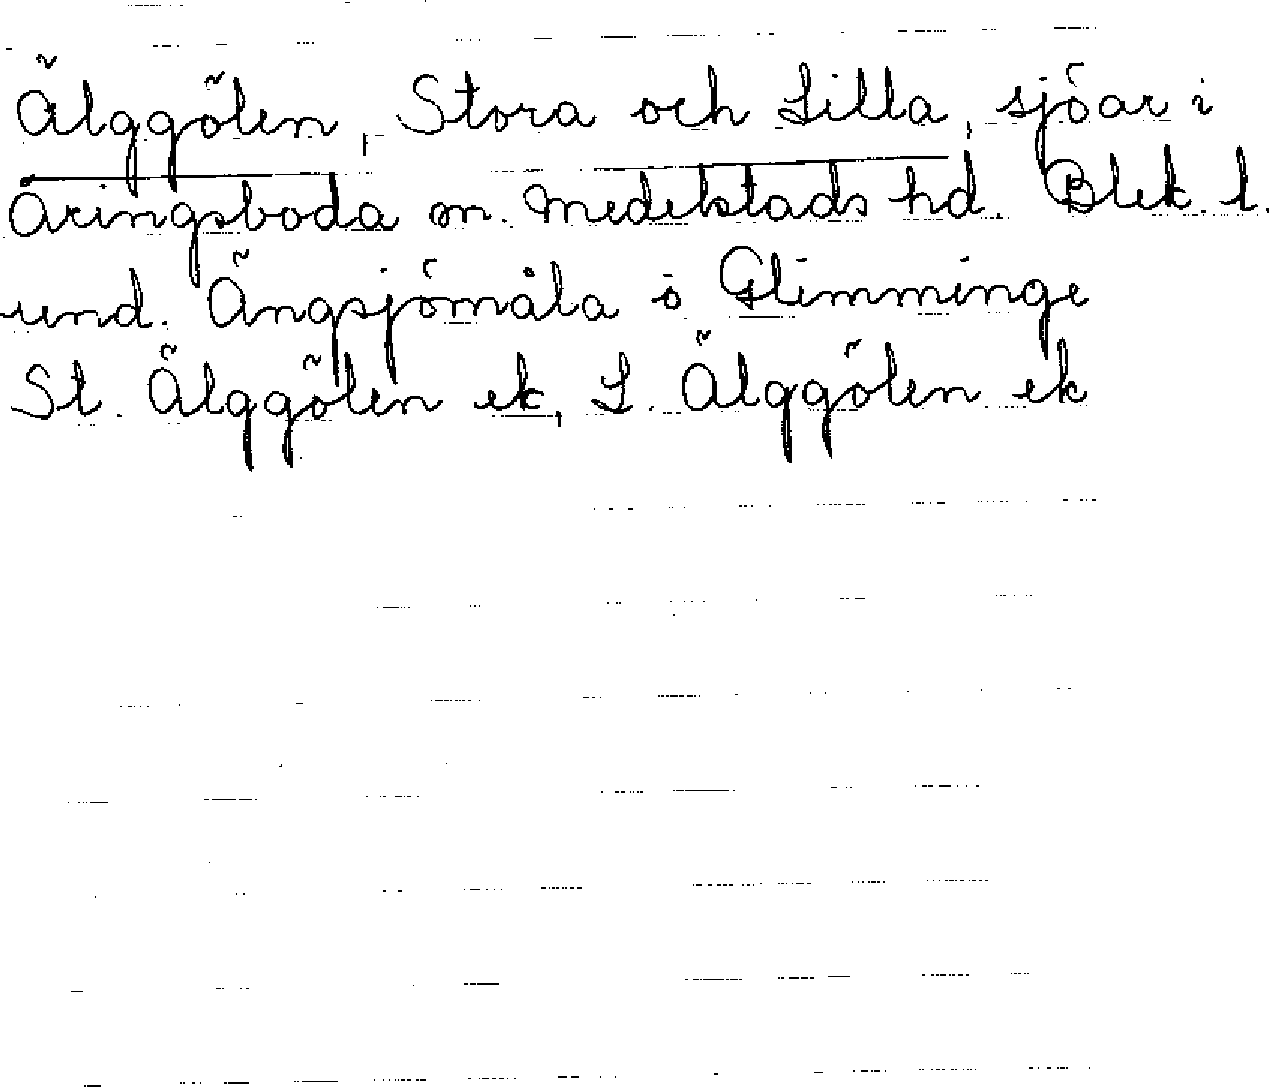 Älggölen, Stora och Lilla, sjöar i
Åringsboda sn. Medelstads hd. Blek. l.
und. Ängsjömåla o Glimminge
St. Älggölen ek, L. Älggölen ek